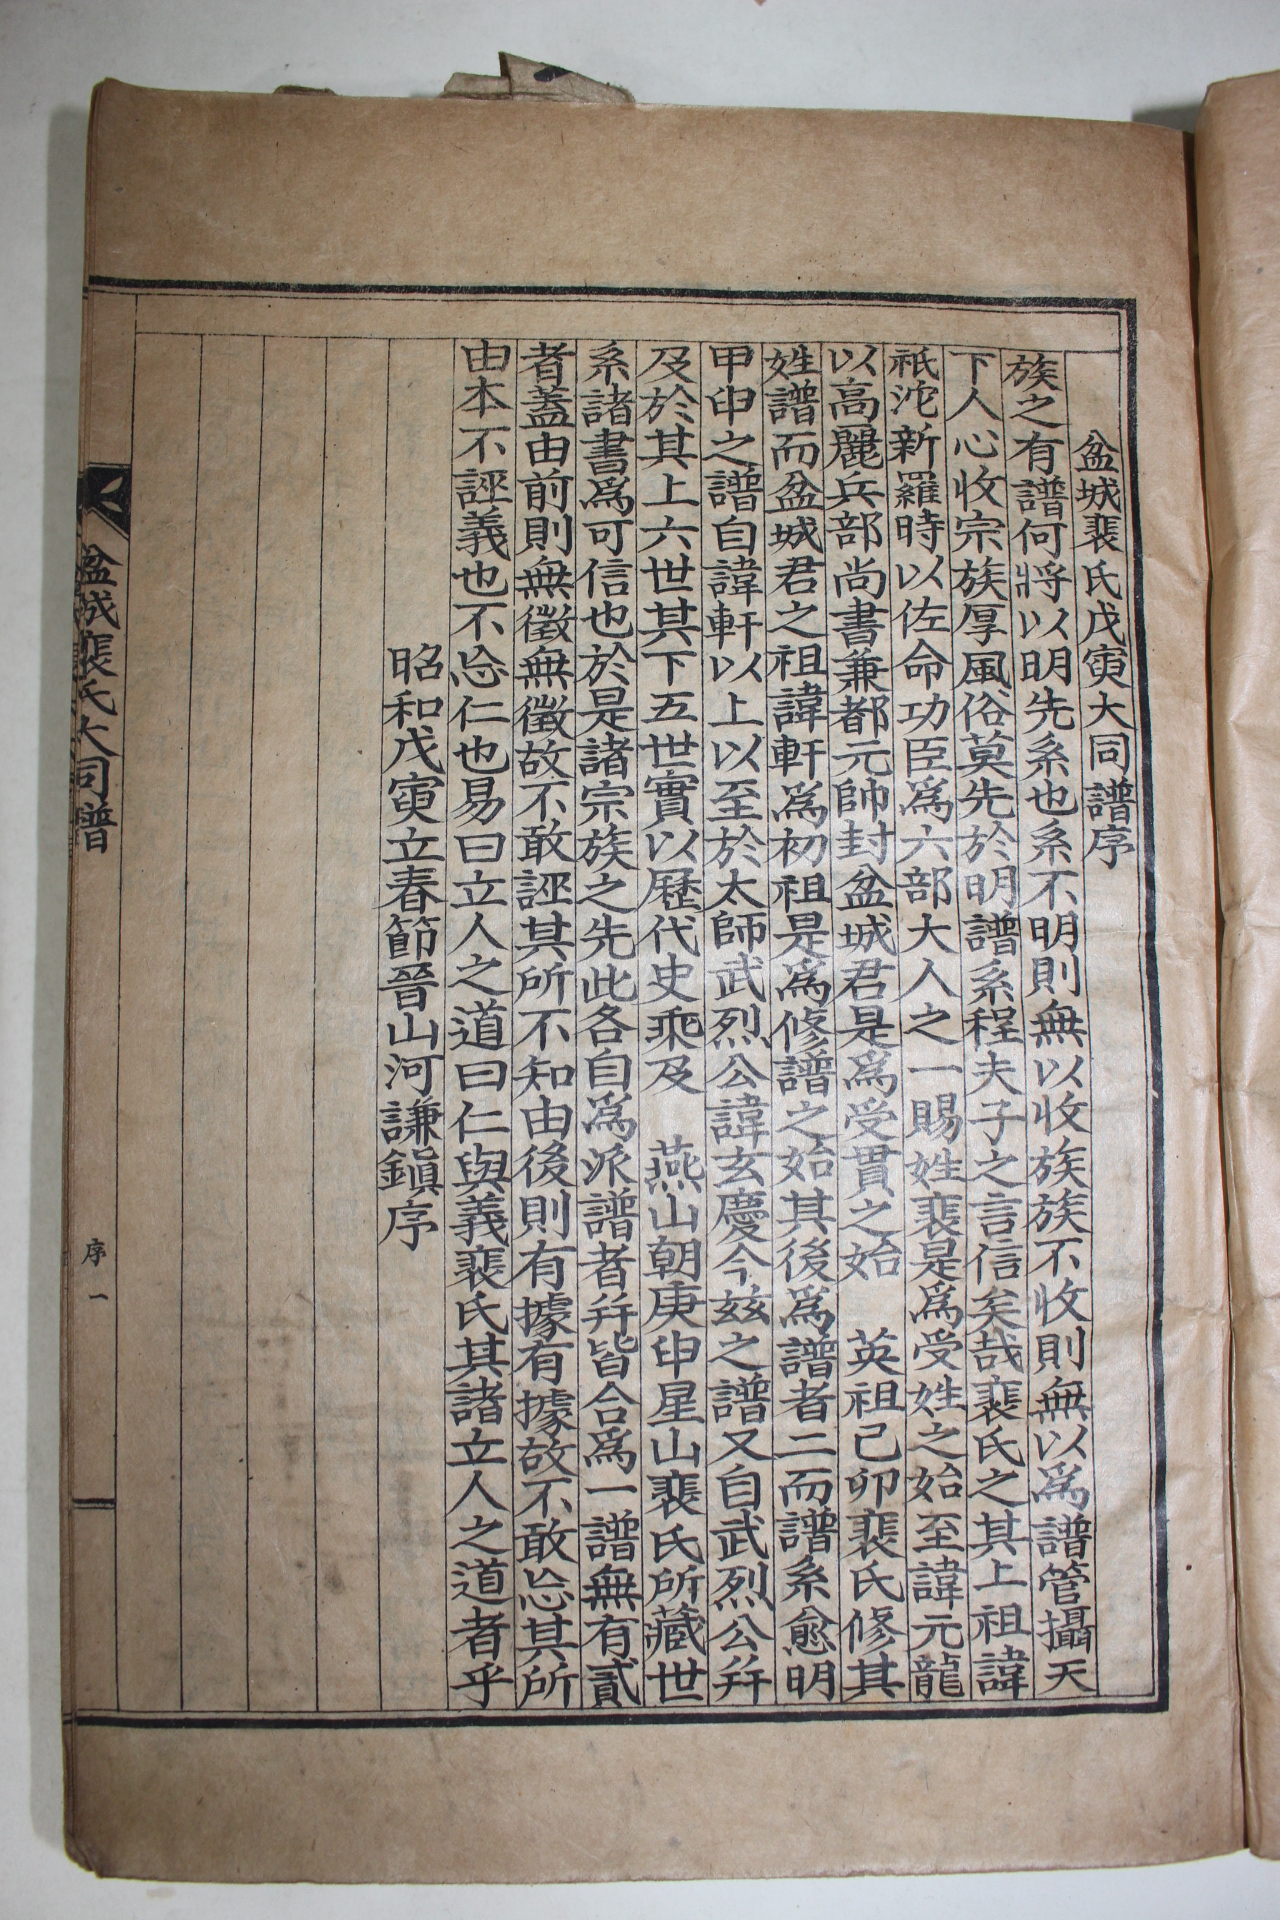 盆城裵氏戊寅大同譜序
族之有譜何將以明先系也系不明則無以收族族不收則無以爲譜管攝天
下人心收宗族厚風俗莫先於明譜系程夫子之言信矣哉裵氏之其上祖諱
祇沱新羅時以佐命功臣爲六部大人之一賜姓裵是爲受姓之始至諱元龍
以高麗兵部尚書兼都元帥封盆城君是爲受貫之始　英祖己卯裵氏修其
姓譜而盆城君之祖諱軒爲初祖是爲修譜之始其後爲譜者二而譜系愈明
甲申之譜自諱軒以上以至於太師武烈公諱玄慶今玆之譜又自武烈公幷
及於其上六世其下五世實以歷代史乘及　燕山朝庚申星山裵氏所藏世
系諸書爲可信也於是諸宗族之先此各自爲派譜者幷皆合爲一譜無有貳
者蓋由前則無徵無徵故不敢誣其所不知由後則有據有據故不敢忘其所
由本不誣義也不忘仁也易曰立人之道曰仁與義裵氏其諸立人之道者乎
昭和戊寅立春節晉山河謙鎭序
盆城裵氏大同譜
序
一